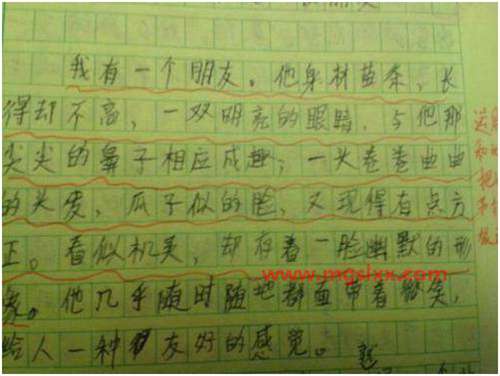 我有一个朋友。他身材苗条，长
得却不高，一双明亮的眼睛，与他那
尖尖的鼻子相应成趣；一头卷卷曲曲
的头发，瓜子似的脸，又现得有点方
正。看似机灵，却存着一脸幽默的形
www.mgslxx.com
象。他几乎随时随地都面带着微笑，
给人一种友好的感觉。